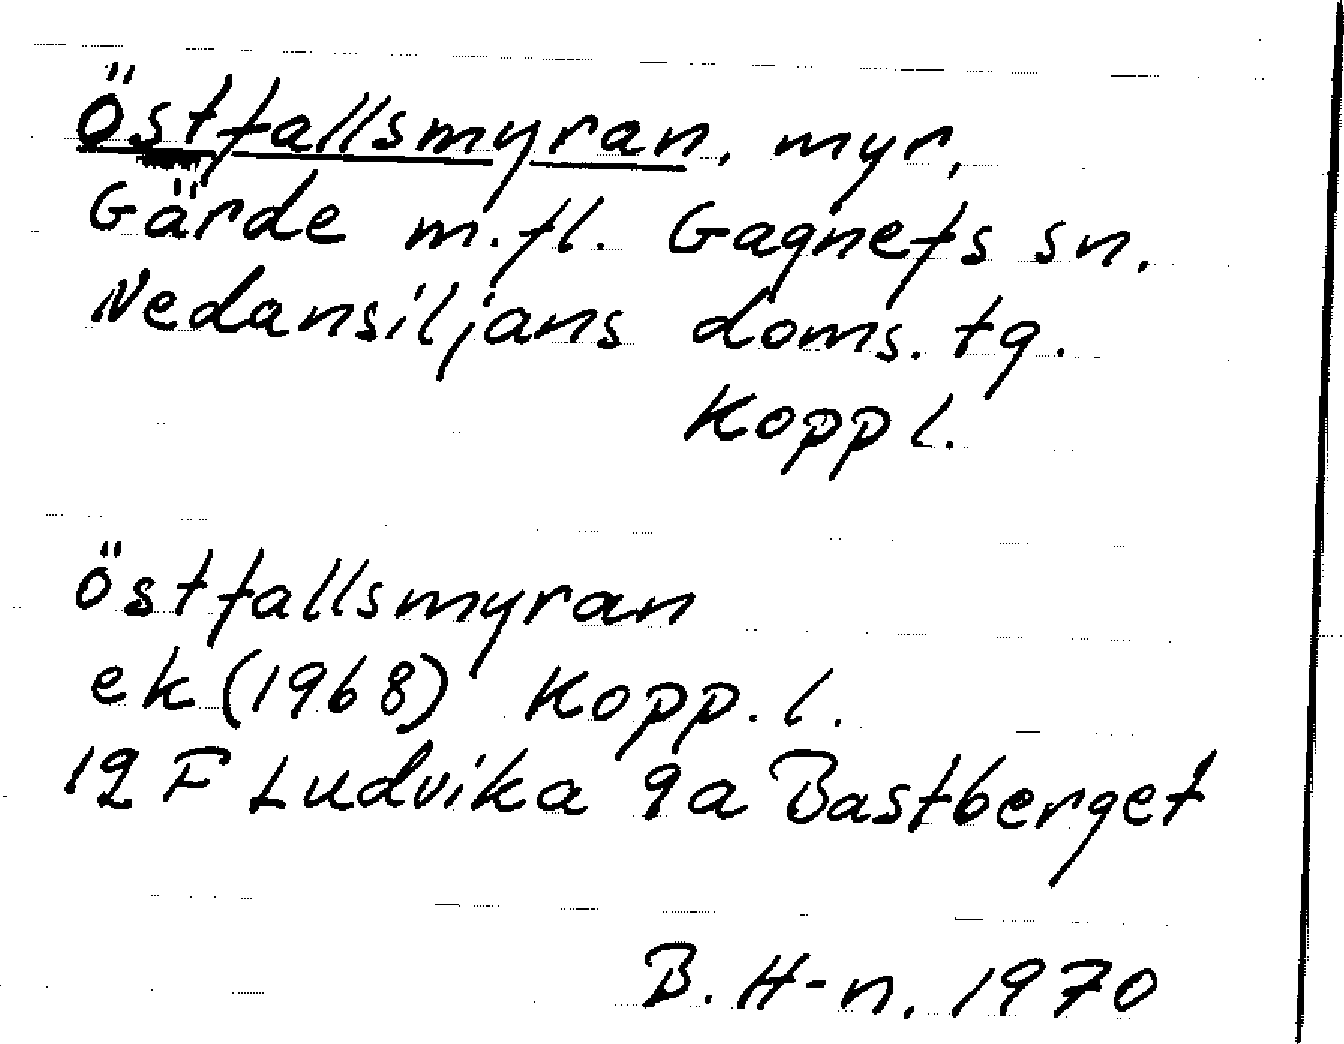 Östfallsmyran, myr,
Gärde m.fl. Gagnefs sn.
Nedansiljans doms. tg.
Koppl.
Östfallsmyran
ek (1968) Kopp. l.
12 F Ludvika 9a Bastberget
B. H-n. 1970